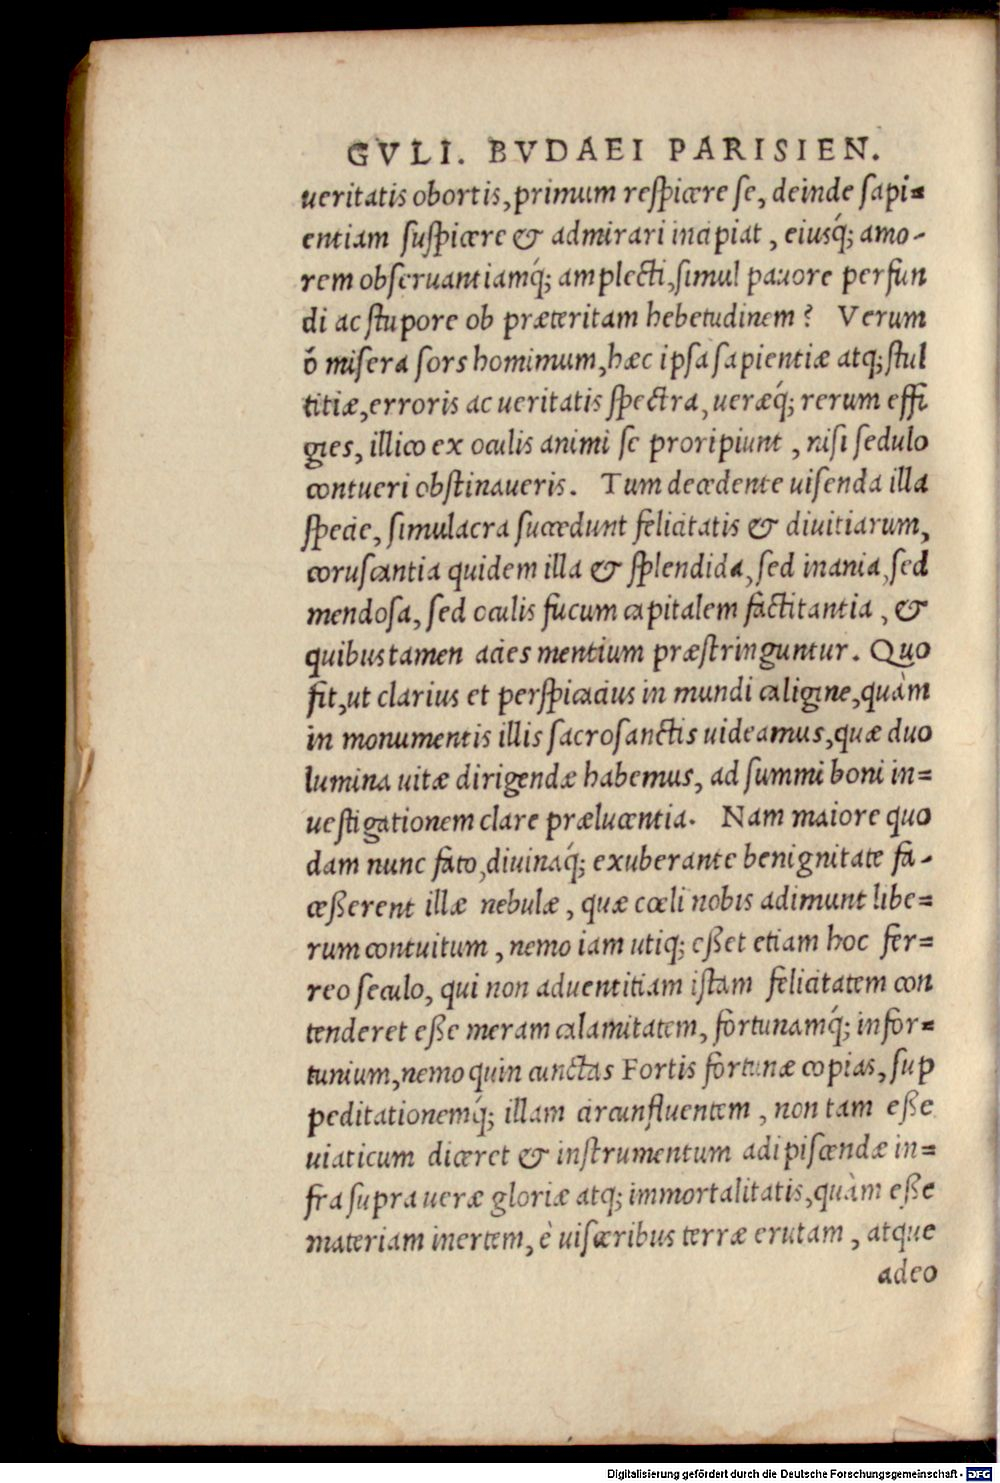 GVLI. BVDAEI PARISIEN.
ueritatis obortis, primum respicere se, deinde sapi=
entiam suspicere & admirari incipiat, eiusq́; amo-
rem obseruantiamq́; amplecti, simul pauore perfun
di ac stupore ob præteritam hebetudinem? Verum
ô misera sors hominum, hæc ipsa sapientiæ atq; stul
titiæ, erroris ac ueritatis spectra, ueræq́; rerum effi
gies, illico ex oculis animi se proripiunt, nisi sedulo
contueri obstinaueris. Tum decedente uisenda illa
specie, simulacra succedunt felicitatis & diuitiarum,
coruscantia quidem illa & splendida, sed inania, sed
mendosa, sed oculis fucum capitalem factitantia, &
quibus tamen acies mentium præstringuntur. Quo
fit, ut clarius et perspicacius in mundi caligine, quàm
in monumentis illis sacrosanctis uideamus, quæ duo
lumina uitæ dirigendæ habemus, ad summi boni in=
uestigationem clare prælucentia. Nam maiore quo
dam nunc fato, diuinaq́; exuberante benignitate fa-
cesserent illæ nebulæ, quæ cœli nobis adimunt libe=
rum contuitum, nemo iam utiq; esset etiam hoc fer=
reo seculo, qui non aduentitiam istam felicitatem con
tenderet esse meram calamitatem, fortunamq́; infor=
tunium, nemo quin cunctas Fortis fortunæ copias, sup
peditationemq́; illam circunfluentem, non tam esse
uiaticum diceret & instrumentum adipiscendæ in=
fra supra ueræ gloriæ atq; immortalitatis, quàm esse
materiam inertem, è uisceribus terræ erutam, atque
adeo
Digitalisierung gefördert durch die Deutsche Forschungsgemeinschaft - DFG